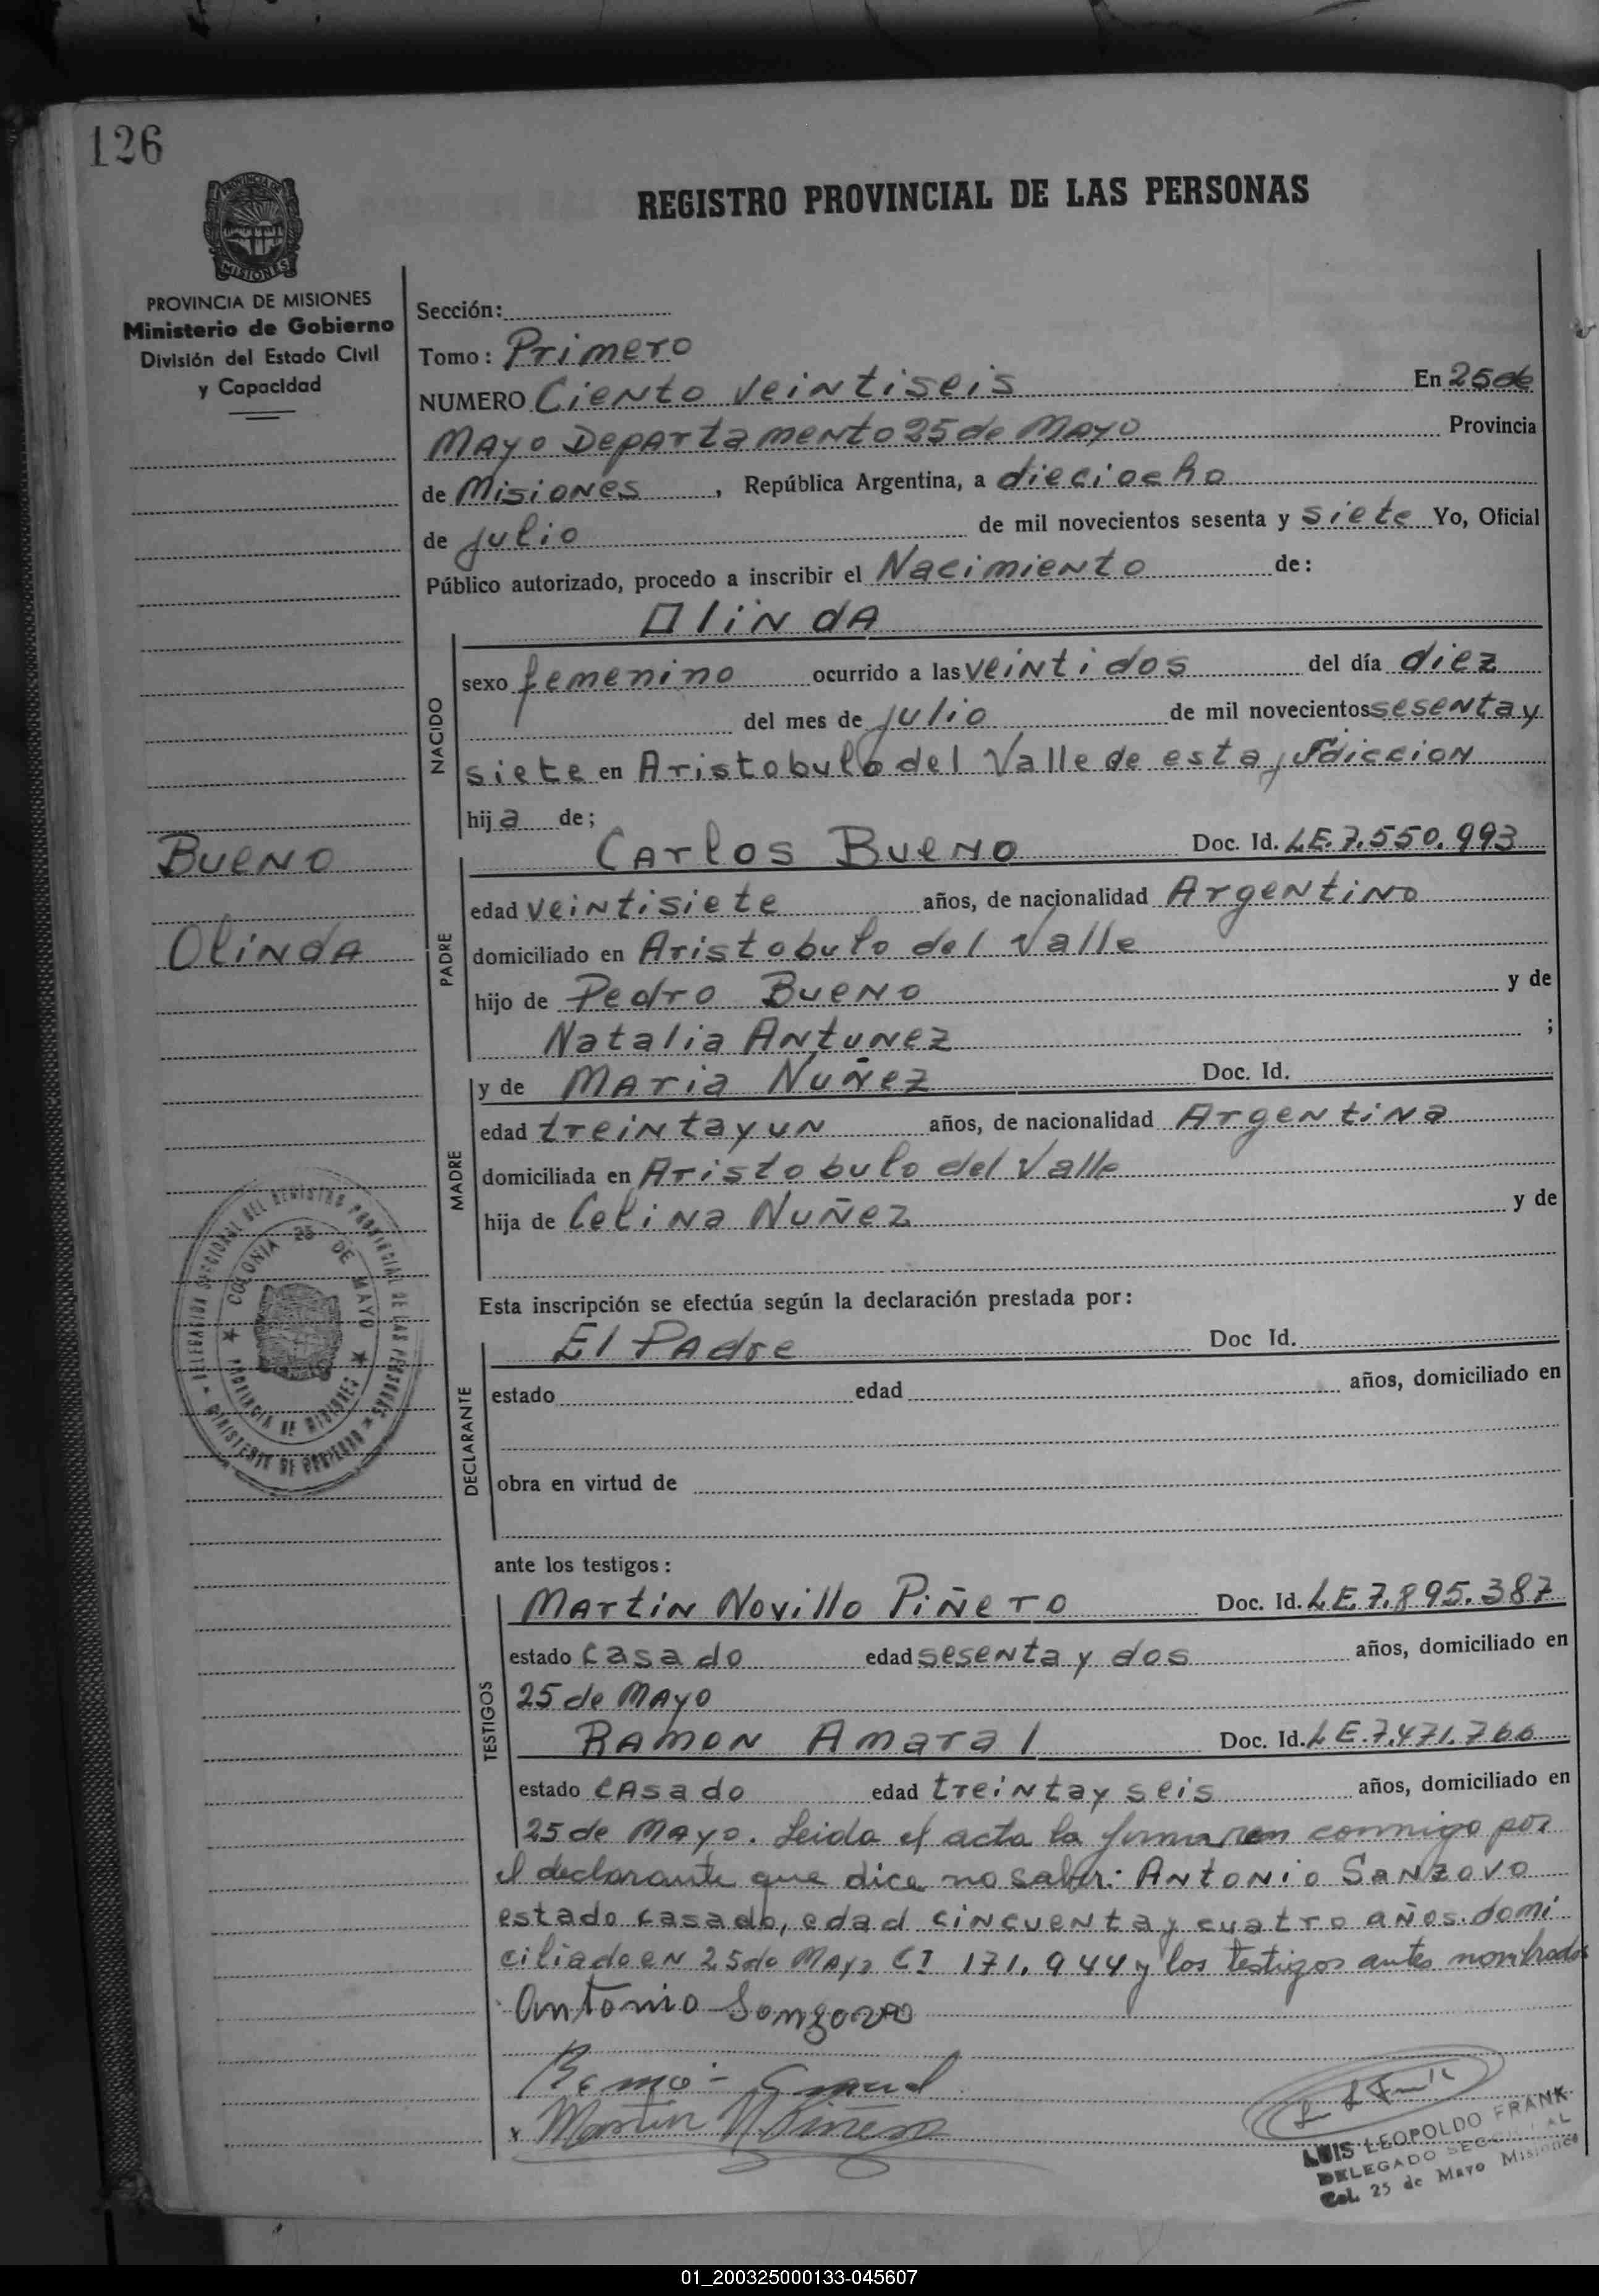 126
REGISTRO PROVINCIAL DE LAS PERSONAS
PROVINCIA DE
MISIONES
PROVINCIA DE MISIONES
Ministerio de Gobierno
División del Estado Civil
y Capacidad
Sección:
Tomo: Primero
NUMERO Ciento veintiseis En 25 de
Mayo Departamento 25 de Mayo Provincia
de Misiones, República Argentina, a dieciocho
de julio de mil novecientos sesenta y siete Yo, Oficial
Público autorizado, procedo a inscribir el Nacimiento de:
Olinda
NACIDO
sexo femenino ocurrido a las veintidos del día diez
del mes de julio de mil novecientos sesenta y
siete en Aristobulo del Valle de esta
hija de;
BUENO
Olinda
PADRE
Carlos Bueno Doc. Id. LE.7.550.993
edad veintisiete años, de nacionalidad Argentino
domiciliado en Aristobulo del Valle
hijo de Pedro Bueno y de
Natalia Antunez ;
MADRE
y de Maria Nuñez Doc. Id.
edad treinta y un años, de nacionalidad Argentina
domiciliada en Aristobulo del Valle
hija de Celina Nuñez y de
Esta inscripción se efectúa según la declaración prestada por:
DECLARANTE
El Padre Doc Id.
estado edad años, domiciliado en
obra en virtud de
DELEGACION SECCIONAL DEL REGISTRO PROVINCIAL DE LAS PERSONAS
MINISTERIO DE GOBIERNO
COLONIA 25 DE MAYO
PROVINCIA DE MISIONES
ante los testigos:
TESTIGOS
Martin Novillo Piñero Doc. Id. LE.7.895.387
estado casado edad sesenta y dos años, domiciliado en
25 de Mayo
Ramon Amaral Doc. Id. LE.7.471.766
estado casado edad treinta y seis años, domiciliado en
25 de Mayo. Leida el acta la firmaron conmigo por
el declarante que dice no saber: Antonio Sanzovo
estado casado, edad cincuenta y cuatro años. domi
ciliado en 25 de Mayo CI 171.944 y los testigos antes nombrados
Antonio Sanzovo
Martin N Piñero
LUIS LEOPOLDO FRANK
DELEGADO SECCIONAL
Col. 25 de Mayo Misiones
01_200325000133-045607